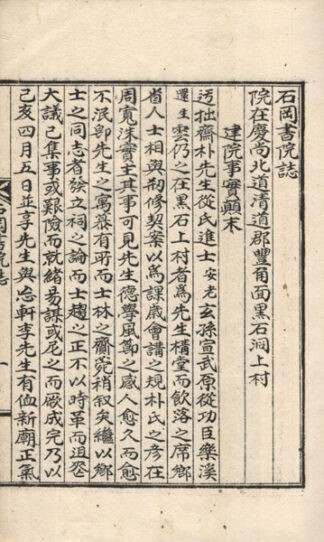 石岡書院誌
院在慶尚北道清道郡豐角面黑石洞上村
建院事實顛末
迃拙齋朴先生從氏進士安老玄孫宣武原從功臣樂溪
還生雲仍之在黑石上村者爲先生構堂而飮落之席鄉
省人士相與刱修契案以爲課歲會講之規朴氏之彥在
周寬洙實主其事可見先生德學風節之感人愈久而愈
不泯郎先生之寓慕有所而士林之齎菀稍叙矣繼以鄉
士之同志者發立祠之論而士趨之正不以時革而沮丞
大議已集事或艱險而就緒易謀或尼之而厥成完乃以
己亥四月五日並享先生與忘軒李先生有侐新廟正氣
石岡書院誌
一